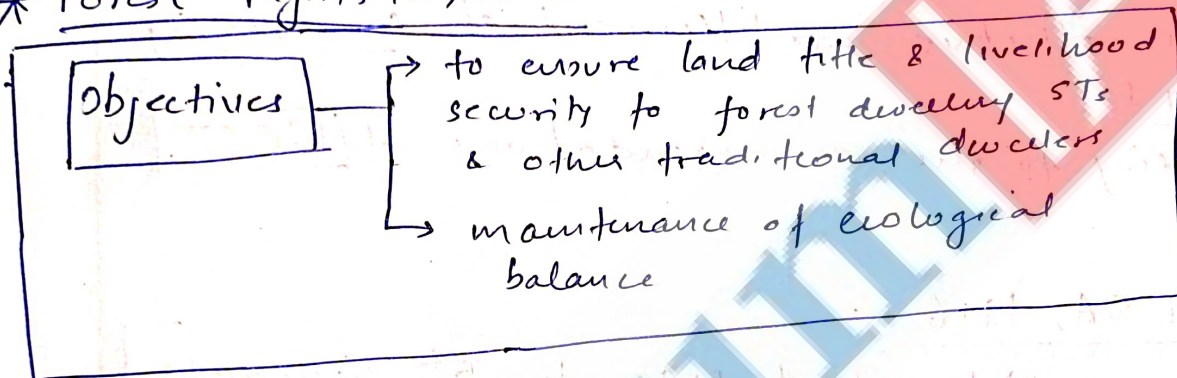 Objectives → to ensure land title & livelihood
security to forest dwelling STs
& other traditional dwellers
→ maintenance of ecological
balance